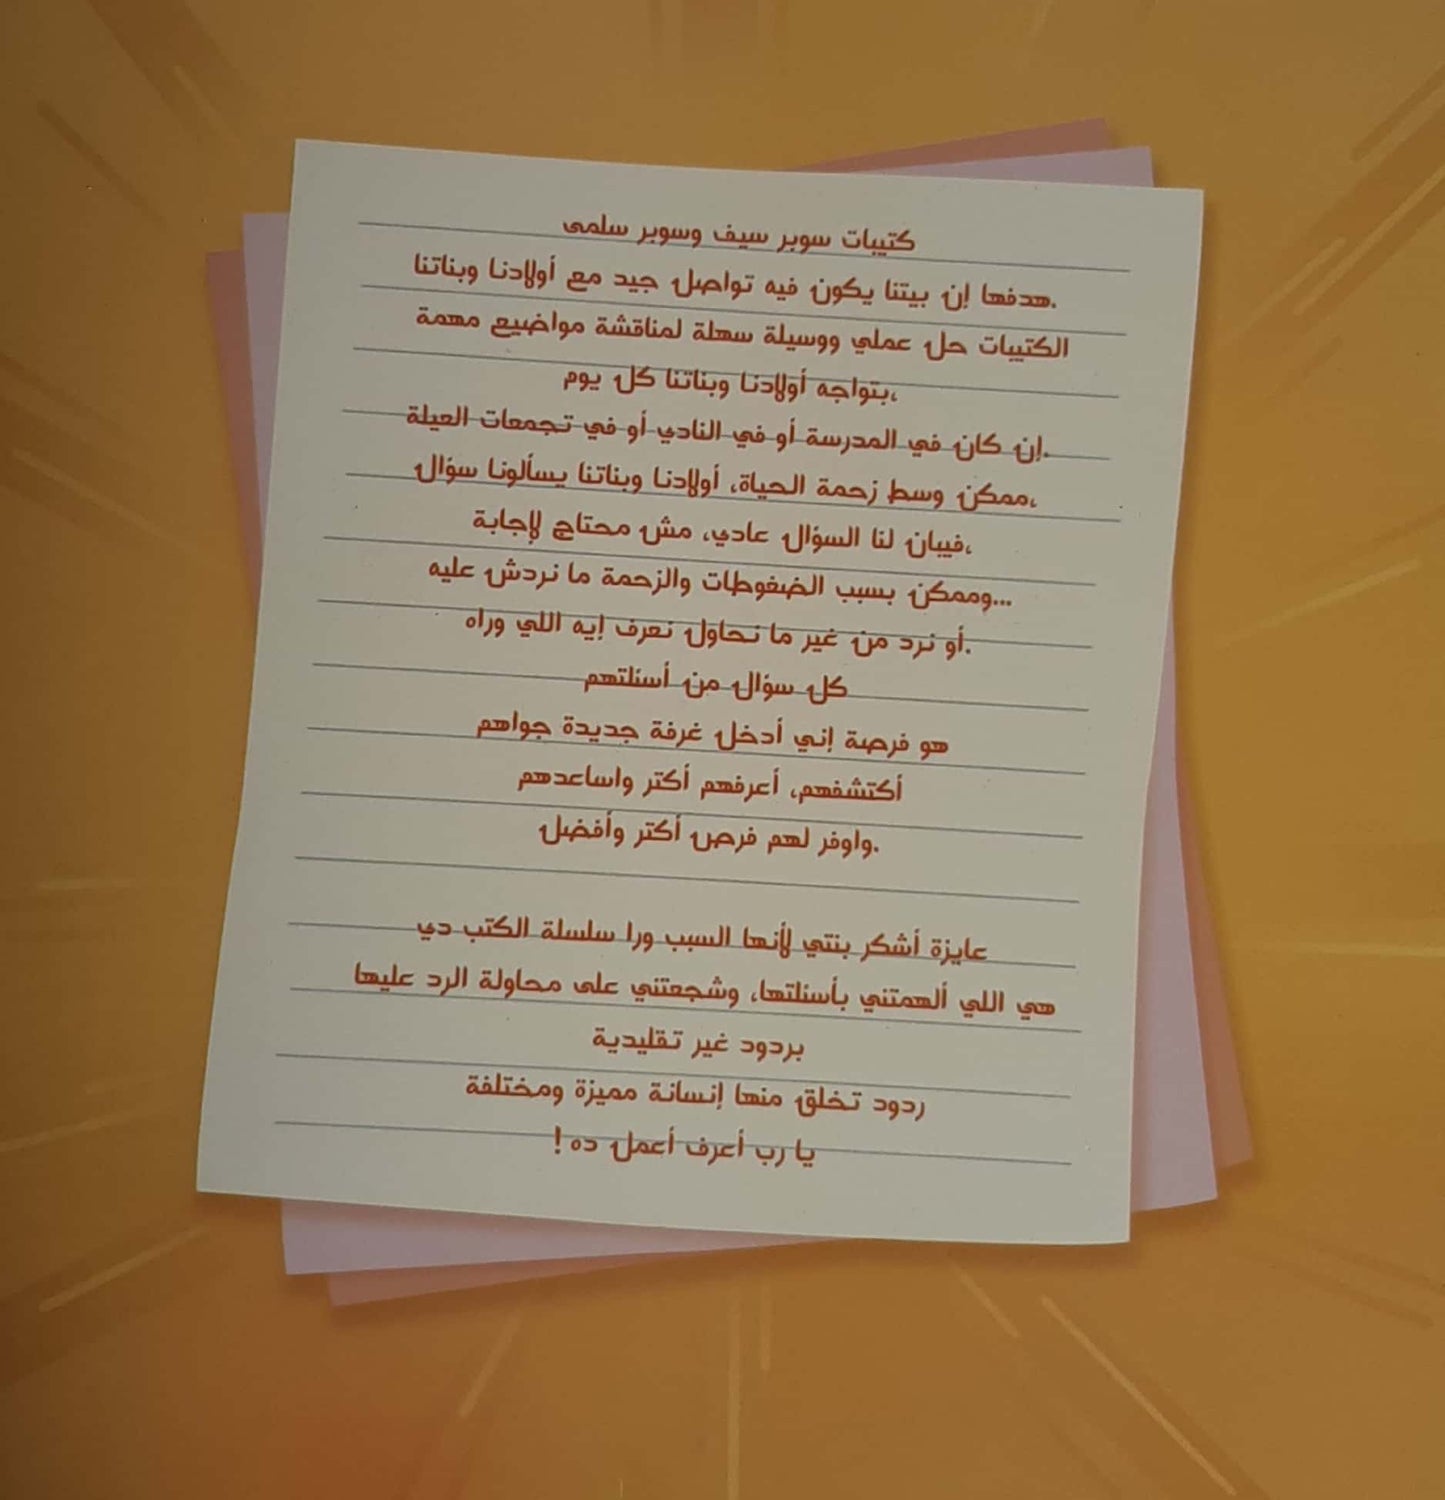 كتيبات سوبر سيف وسوبر سلمى
.هدفها إن بيتنا يكون فيه تواصل جيد مع أولادنا وبناتنا
الكتيبات حل عملي ووسيلة سهلة لمناقشة مواضيع مهمة
،بتواجه أولادنا وبناتنا كل يوم
.إن كان في المدرسة أو في النادي أو في تجمعات العيلة
،ممكن وسط زحمة الحياة، أولادنا وبناتنا يسألونا سؤال
،فيبان لنا السؤال عادي، مش محتاج لإجابة
...وممكن بسبب الضغوطات والزحمة ما نردش عليه
.أو نرد من غير ما نحاول نعرف إيه اللي وراه
كل سؤال من أسئلتهم
هو فرصة إني أدخل غرفة جديدة جواهم
أكتشفهم، أعرفهم أكتر واساعدهم
.واوفر لهم فرص أكتر وأفضل
عايزة أشكر بنتي لأنها السبب ورا سلسلة الكتب دي
هي اللي ألهمتني بأسئلتها، وشجعتني على محاولة الرد عليها
بردود غير تقليدية
ردود تخلق منها إنسانة مميزة ومختلفة
يا رب أعرف أعمل ده !